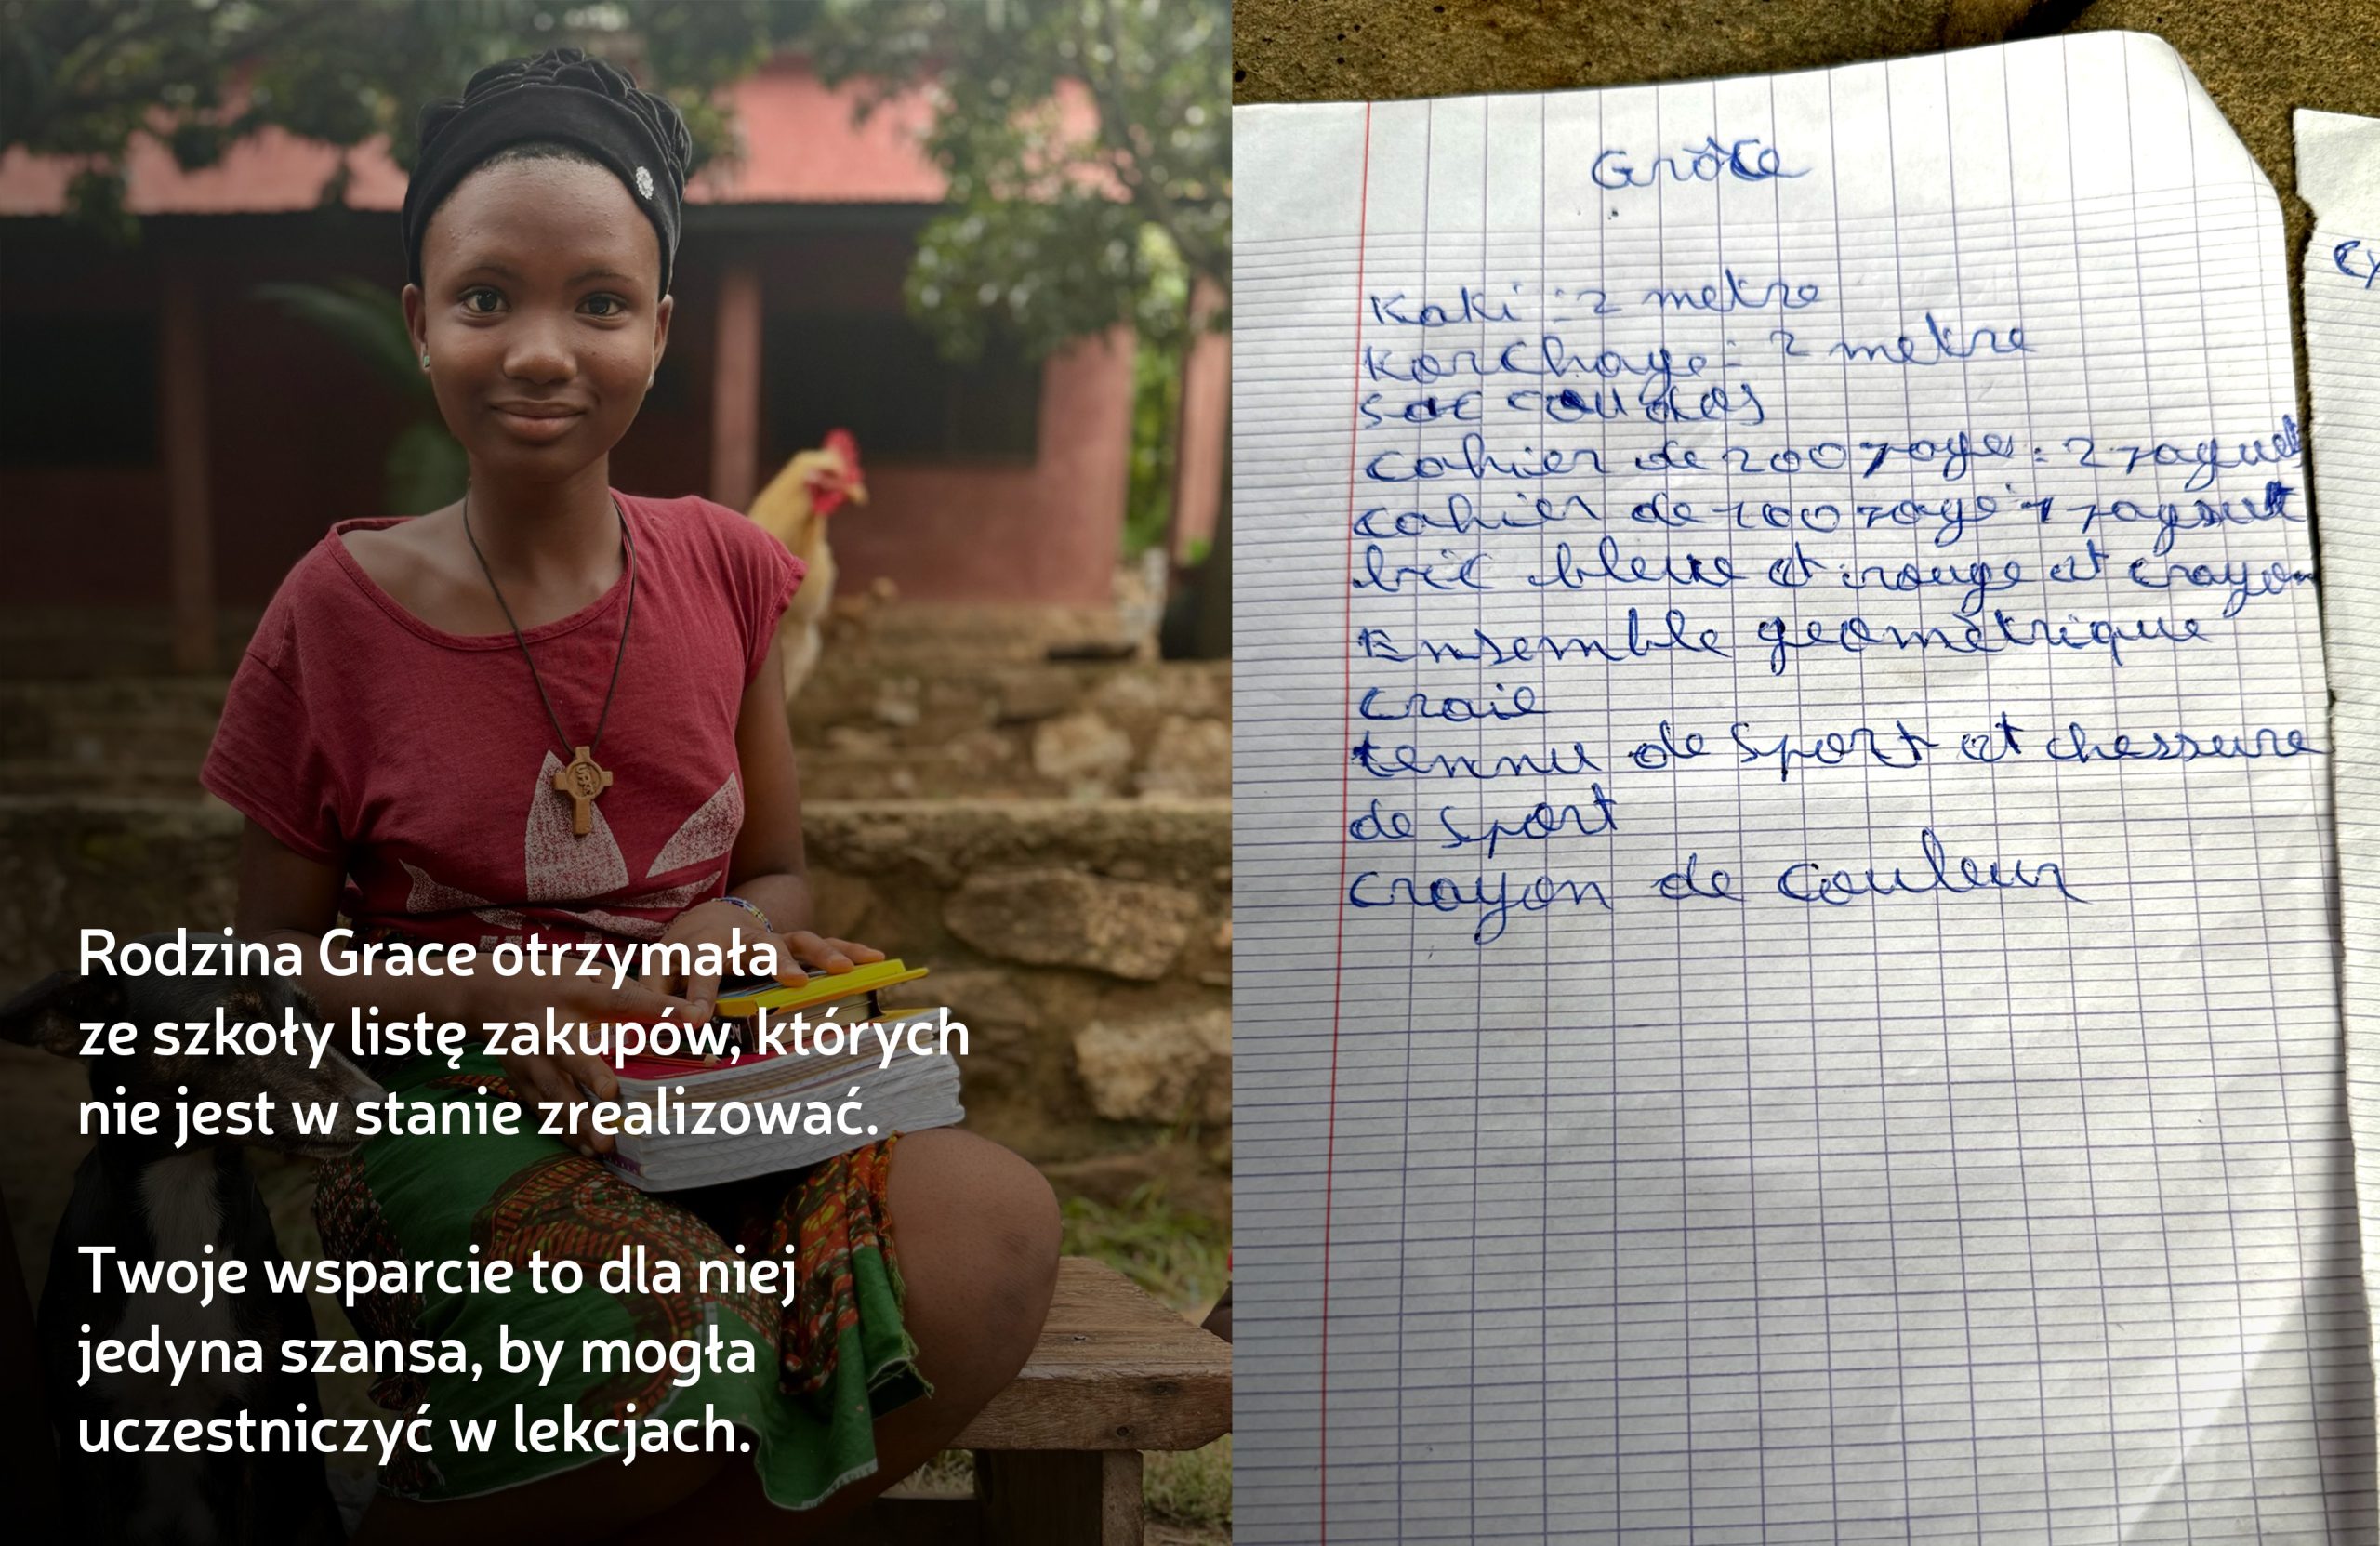 Rodzina Grace otrzymała
ze szkoły listę zakupów, których
nie jest w stanie zrealizować.
Twoje wsparcie to dla niej
jedyna szansa, by mogła
uczestniczyć w lekcjach.
Grâce
Kaki : 2 metre
Korchoge : 2 metre
sac
cahier de 200 page : 2 paquet
cahier de 100 page 1 paquet
bic bleue et rouge et crayon
Ensemble geomètrique
craie
tennu de sport et chessure
de sport
crayon de couleur